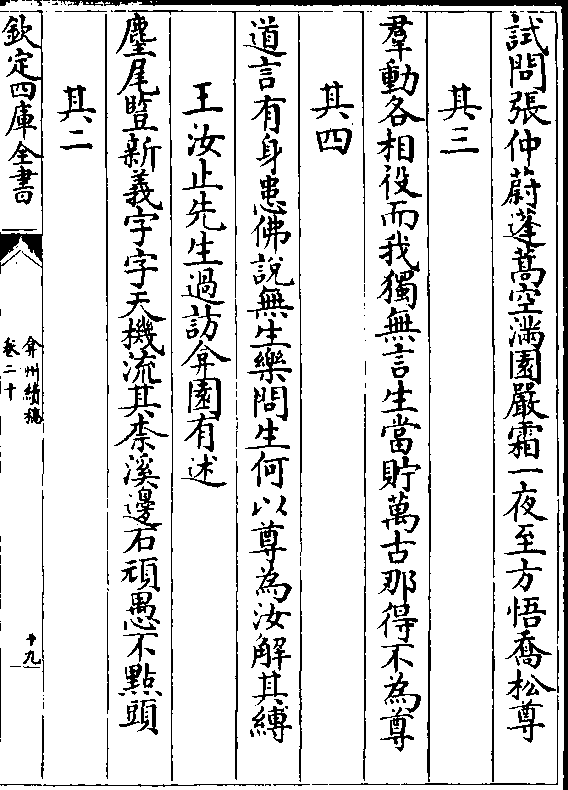 試問張仲蔚蓬蒿空滿園嚴霜一夜至方悟喬松尊
其三
羣動各相役而我獨無言生當貯萬古那得不為尊
其四
道言有身患佛說無生樂問生何以尊為汝解其縛
王汝止先生過訪弇園有述
麈尾豎新義字字天機流其柰溪邊石頑愚不點頭
其二
欽定四庫全書
弇州續稿
卷二十
十九